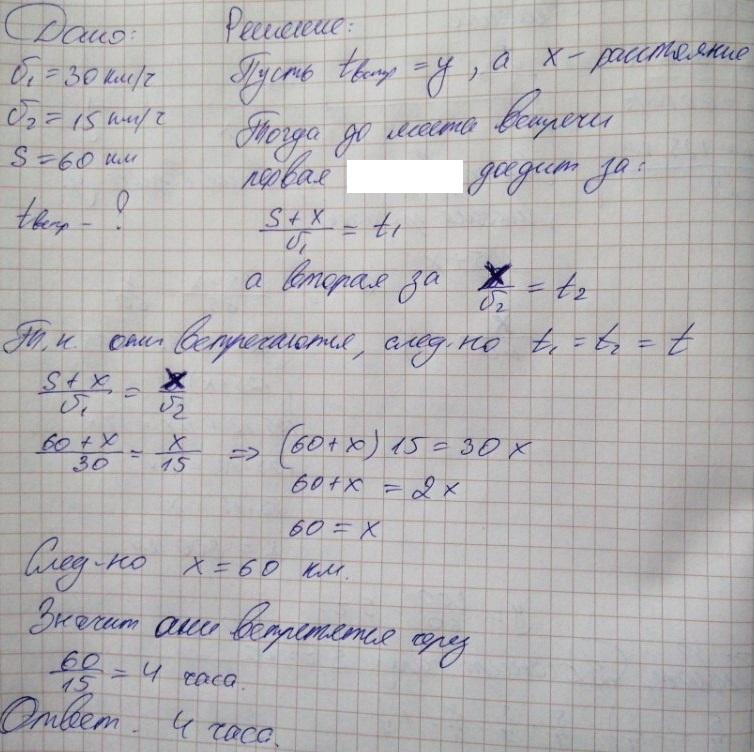 Дано:
Решение:
υ₁ = 30 км/ч
Пусть tвстр = y, а x – расстояние
υ₂ = 15 км/ч
Тогда до места встречи
S = 60 км
первая доедит за:
tвстр – ?
(S + x)/υ₁ = t₁
а вторая за x/υ₂ = t₂
Т.к. они встречаются, след-но t₁ = t₂ = t
(S + x)/υ₁ = x/υ₂
(60 + x)/30 = x/15 => (60 + x) 15 = 30 x
60 + x = 2x
60 = x
След-но x = 60 км.
Значит они встретятся через
60/15 = 4 часа.
Ответ. 4 часа.